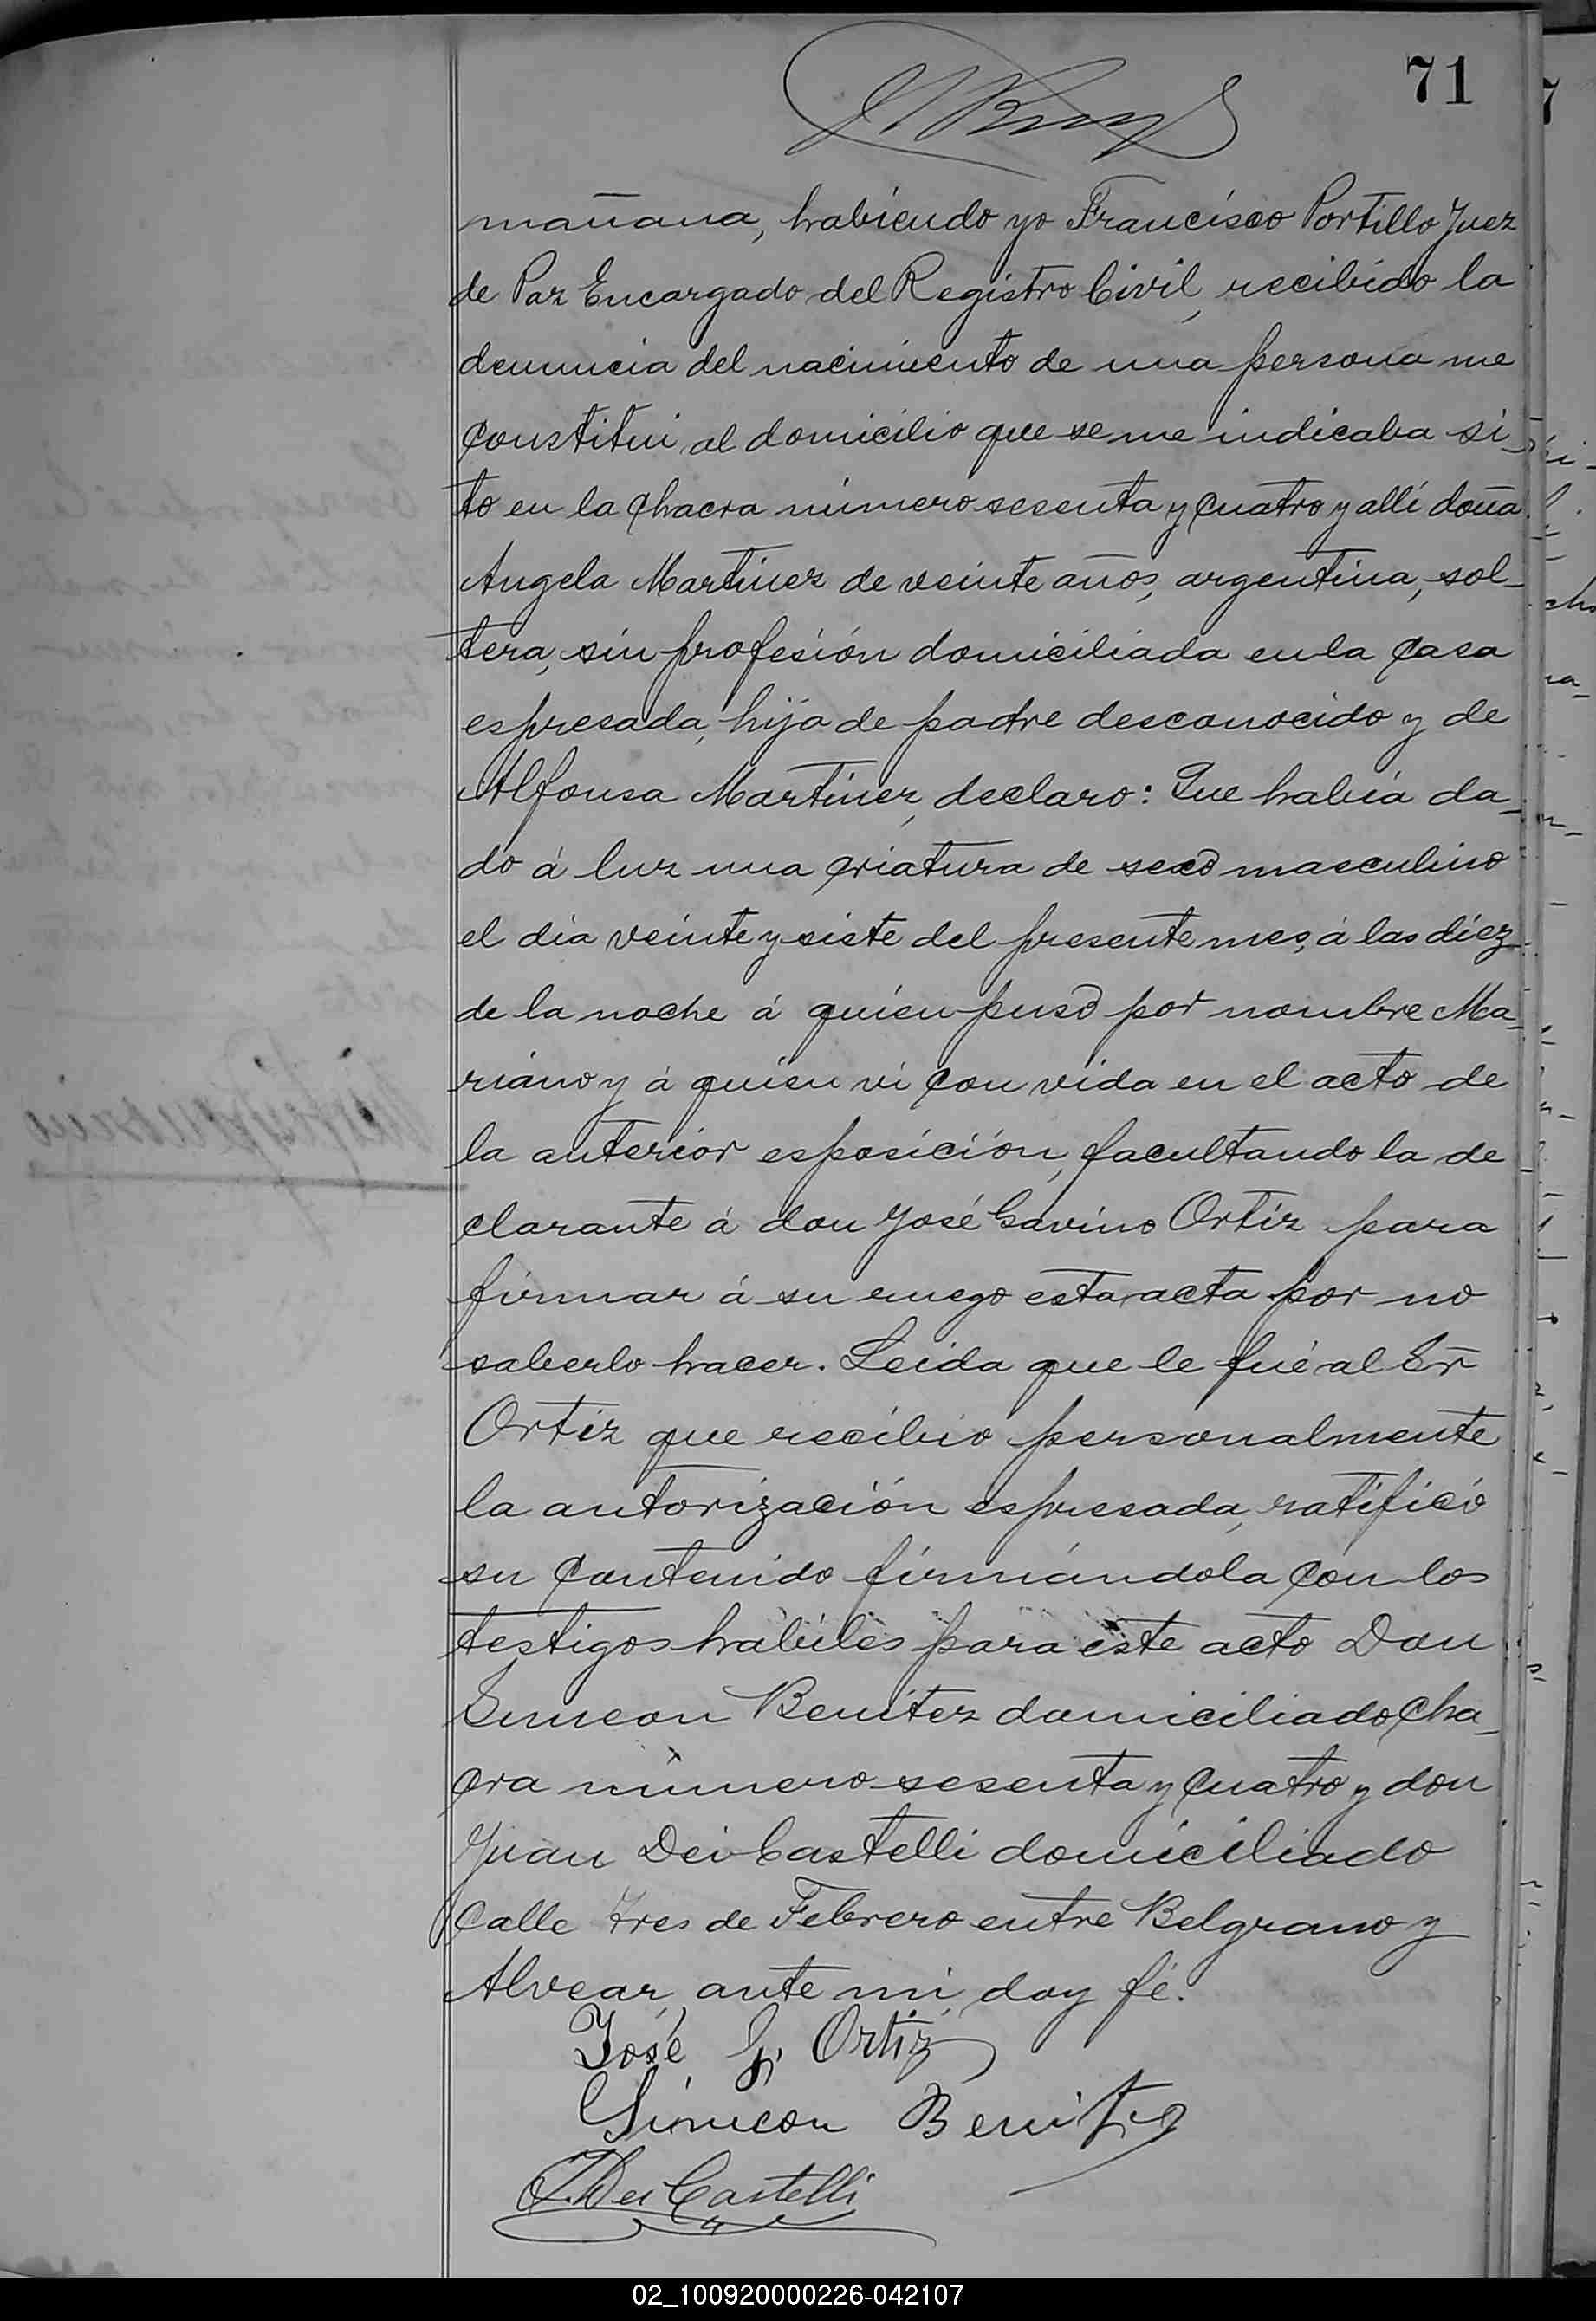 71
mañana, habiendo yo Francisco Portillo Juez
de Paz Encargado del Registro Civil, recibido la
denuncia del nacimiento de una persona me
constitui al domicilio que se me indicaba si_
to en la chacra número sesenta y cuatro y allí doña
Angela Martinez de veinte años, argentina, sol_
tera, sin profesión domiciliada en la casa
espresada, hija de padre desconocido y de
Alfonsa Martinez, declaro: Que había da_
do á luz una criatura de sexo masculino
el dia veinte y siete del presente mes, á las diez
de la noche á quien puso por nombre Ma_
riano y á quien vi con vida en el acto de
la anterior esposición, facultando la de
clarante á don José Gavino Ortiz para
firmar á su ruego esta acta por no
saberlo hacer. Leida que le fué al Sr
Ortiz que recibio personalmente
la autorización espresada, ratificó
su contenido firmándola con los
testigos habiles para este acto Don
Simeon Benitez domiciliado cha_
cra número sesenta y cuatro y don
Juan Dei Castelli domiciliado
calle Tres de Febrero entre Belgrano y
Alvear, ante mi, doy fé.
José G. Ortiz
Simeon Benitez
J. Dei Castelli
02_100920000226-042107